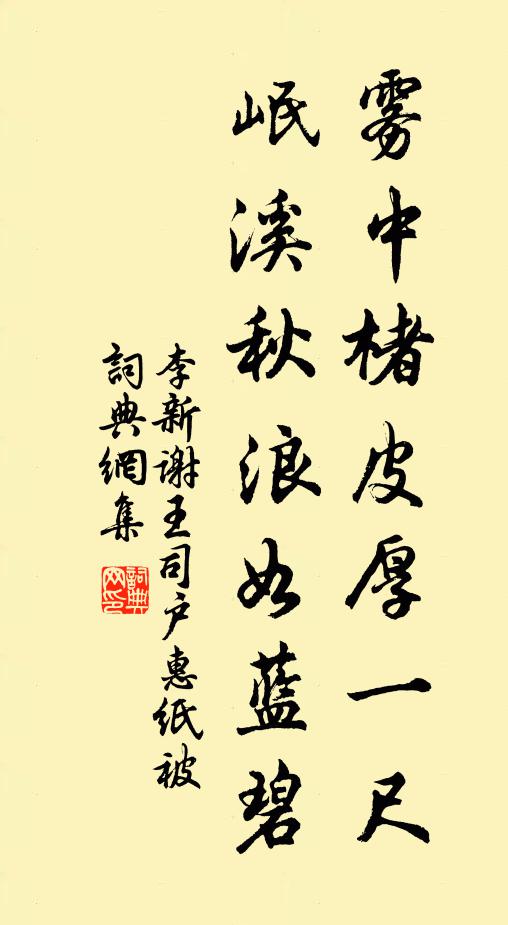 雾中楮皮厚一尺
岷溪秋浪如藍碧
李新谢王司户惠紙被
詞典網集
詞典网印